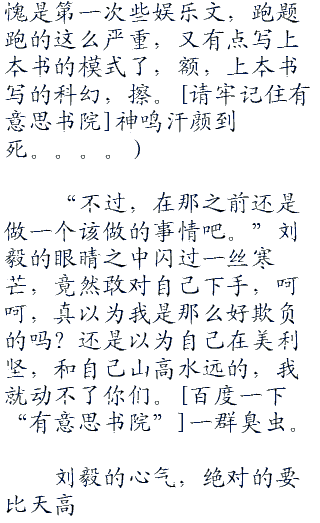 愧是第一次些娱乐文，跑题
跑的这么严重，又有点写上
本书的模式了，额，上本书
写的科幻，擦。[请牢记住有
意思书院]神鸣汗颜到
死。。。。）
“不过，在那之前还是
做一个该做的事情吧。”刘
毅的眼睛之中闪过一丝寒
芒，竟然敢对自己下手，呵
呵，真以为我是那么好欺负
的吗？还是以为自己在美利
坚，和自己山高水远的，我
就动不了你们。[百度一下
“有意思书院”]一群臭虫。
刘毅的心气，绝对的要
比天高